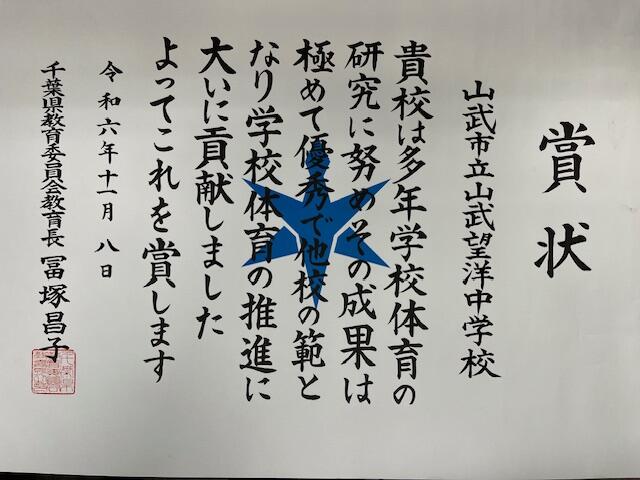 賞状
山武市立山武望洋中学校
貴校は多年学校体育の
研究に努めその成果は
極めて優秀で他校の範と
なり学校体育の推進に
大いに貢献しました
よってこれを賞します
令和六年十一月八日
千葉県教育委員会教育長 冨塚昌子